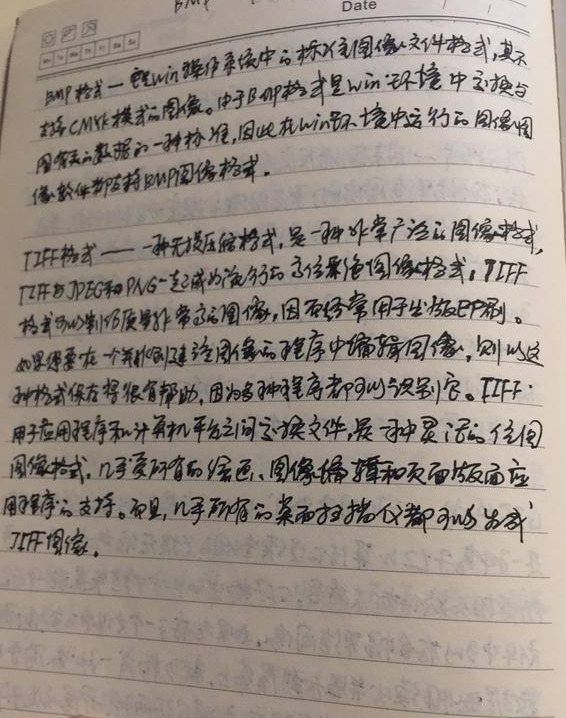 BMP
Date
Mo Tu We Th Fr Sa Su
BMP格式——是Win操作系统中的标准图像文件格式,其不
支持CMYK模式的图像。由于BMP格式是Win环境中交换与
图有关的数据的一种标准,因此在Win环境中运行的图像图
像软件都支持BMP图像格式。
TIFF格式——一种无损压缩格式,是一种非常广泛的图像格式,
TIFF与JPEG和PNG一起成为流行的高位彩色图像格式。TIFF
格式可以制作质量非常高的图像,因而经常用于出版印刷。
如果想要在一个并非创建该图像的程序中编辑图像,则以这
种格式保存将很有帮助,因为多种程序都可以识别它。TIFF
用于应用程序和计算机平台之间交换文件,是一种灵活的位图
图像格式,几乎受所有的绘画、图像编辑和页面版面应
用程序的支持。而且,几乎所有的桌面扫描仪都可以生成
TIFF图像。